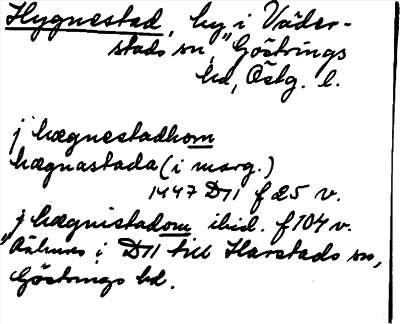 Hygnestad, by i Väder-
stads sn, "Göstrings
hd, Östg. l.
j hægnestadhom
hægnastada (i marg.)
1447 D11 f 25 v.
j hægnistadom ibid. f 104 v.
i D11 till Harstads sn,
Göstrings hd.